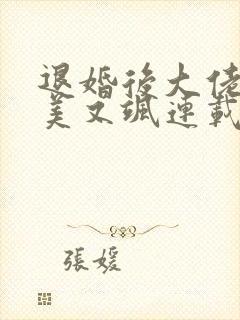 退婚後大佬
美又颯連載
張媛